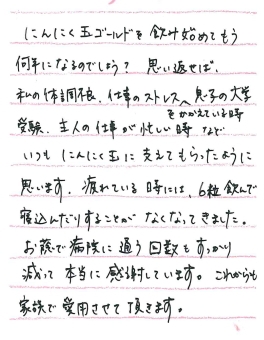 にんにく玉ゴールドを飲み始めてもう
何年になるのでしょう? 思い返せば、
私の体調不良、仕事のストレスをかかえている時、息子の大学
受験、主人の仕事が忙しい時 など
いつも にんにく玉に支えてもらったように
思います。疲れている時には、6粒飲んで
寝込んだりすることが なくなってきました。
お蔭で病院に通う回数もすっかり
減って 本当に感謝しています。これからも
家族で愛用させて頂きます。